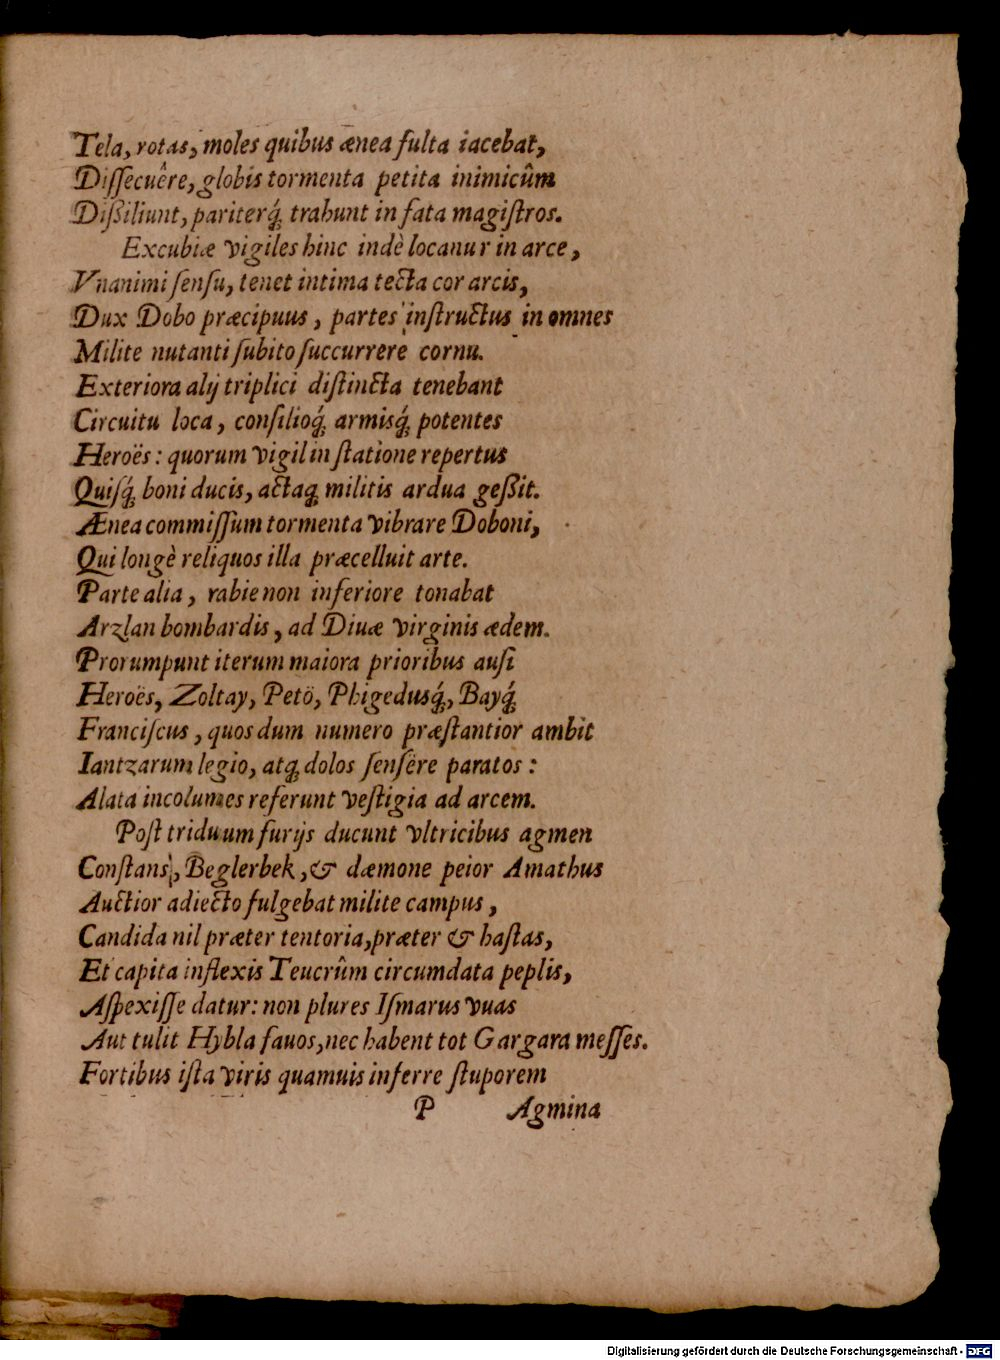 Tela, rotas, moles quibus ænea fulta iacebat,
Diſſecuêre, globis tormenta petita inimicûm
Dißiliunt, pariterq́; trahunt in fata magiſtros.
Excubiæ vigiles hinc indè locanur in arce,
Vnanimi ſenſu, tenet intima tecta cor arcis,
Dux Dobo præcipuus, partes inſtructus in omnes
Milite nutanti ſubito ſuccurrere cornu.
Exteriora alij triplici diſtincta tenebant
Circuitu loca, conſilioq́; armisq́; potentes
Heroës: quorum vigil in ſtatione repertus
Quiſq́; boni ducis, actaq; militis ardua geßit.
Ænea commiſſum tormenta vibrare Doboni,
Qui longè reliquos illa præcelluit arte.
Parte alia, rabie non inferiore tonabat
Arzlan bombardis, ad Diuæ virginis ædem.
Prorumpunt iterum maiora prioribus auſi
Heroës, Zoltay, Petö, Phigedusq́;, Bayq́;
Franciſcus, quos dum numero præſtantior ambit
Iantzarum legio, atq; dolos ſenſêre paratos:
Alata incolumes referunt veſtigia ad arcem.
Poſt triduum furijs ducunt vltricibus agmen
Conſtans, Beglerbek, & dæmone peior Amathus
Auctior adiecto fulgebat milite campus,
Candida nil præter tentoria, præter & haſtas,
Et capita inflexis Teucrûm circumdata peplis,
Aſpexiſſe datur: non plures Iſmarus vuas
Aut tulit Hybla fauos, nec habent tot Gargara meſſes.
Fortibus iſta viris quamuis inferre ſtuporem
P Agmina
Digitalisierung gefördert durch die Deutsche Forschungsgemeinschaft - DFG